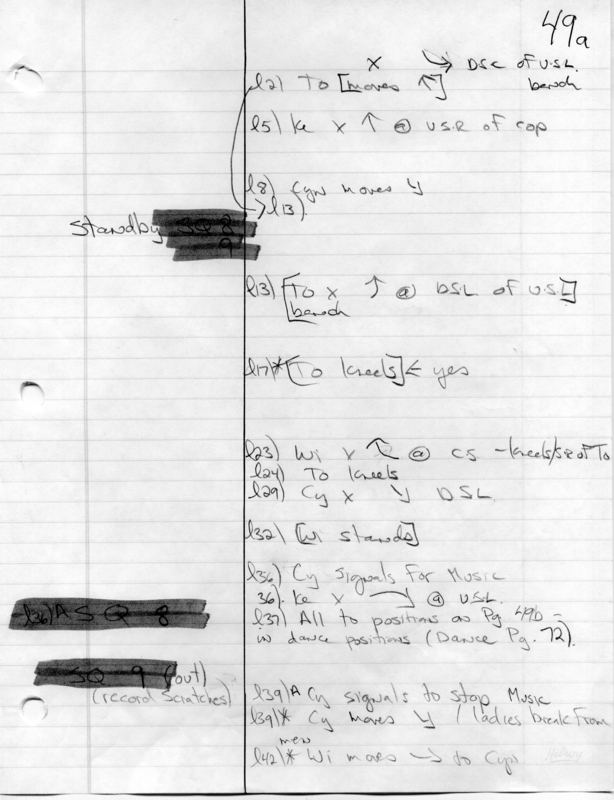 49a
X ↘ DSC of U.S.L. bench
l2) To [moves ↑]
l5) Ke X ↑ @ U.S.R of cop
l8) Cyn moves ↘
→ l13)
standby SQ 8
9
l13) [To X ↑ @ DSL of U.S.L] bench
l17)* [To kneels] ← yes
l23) Wi X ↖ @ CS - kneels/SR of To
l24) To kneels
l29) Cy X ↘ DSL
l32) [Wi stands]
l36) Cy signals for Music
36). Ke X → @ USL.
l36) A SQ 8
l37) All to positions on Pg 49b -
in dance positions (Dance Pg. 72).
SQ 9 (out)
(record scratches)
l39) A Cy signals to stop Music
l39)* Cy moves ↘ / ladies break from
men
l42)* Wi moves → to Cyn